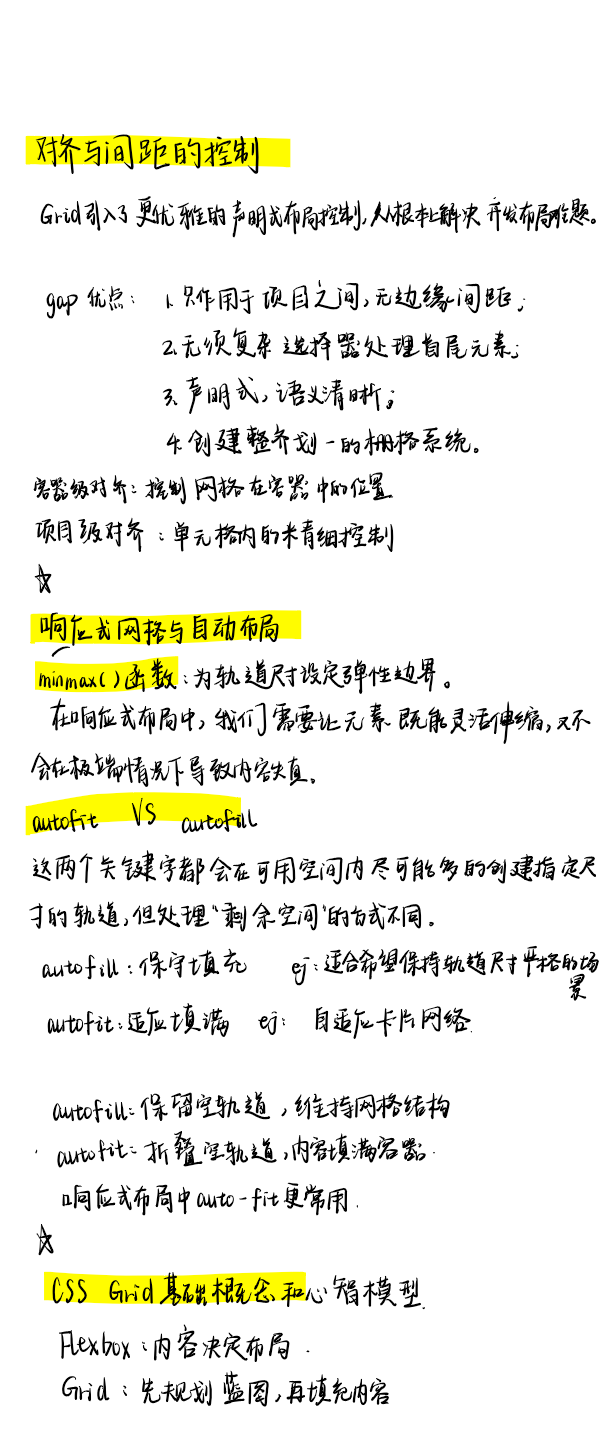 对齐与间距的控制
Grid引入了更优雅的声明式布局控制,从根本上解决开发布局难题。
gap 优点: 1. 只作用于项目之间,无边缘间距;
2. 无须复杂选择器处理首尾元素;
3. 声明式,语义清晰;
4. 创建整齐划一的栅格系统。
容器级对齐:控制网格在容器中的位置
项目级对齐:单元格内的精细控制
☆
响应式网格与自动布局
minmax()函数:为轨道尺寸设定弹性边界。
在响应式布局中,我们需要让元素既能灵活伸缩,又不
会在极端情况下导致内容失真。
autofit VS autofill
这两个关键字都会在可用空间内尽可能多的创建指定尺
寸的轨道,但处理“剩余空间”的方式不同。
autofill:保守填充 ej:适合希望保持轨道尺寸严格的场
景
autofit:适应填满 ej: 自适应卡片网络.
autofill:保留空轨道,维持网格结构
autofit:折叠空轨道,内容填满容器.
响应式布局中auto-fit更常用.
☆
CSS Grid基础概念和心智模型.
Flexbox:内容决定布局.
Grid:先规划蓝图,再填充内容